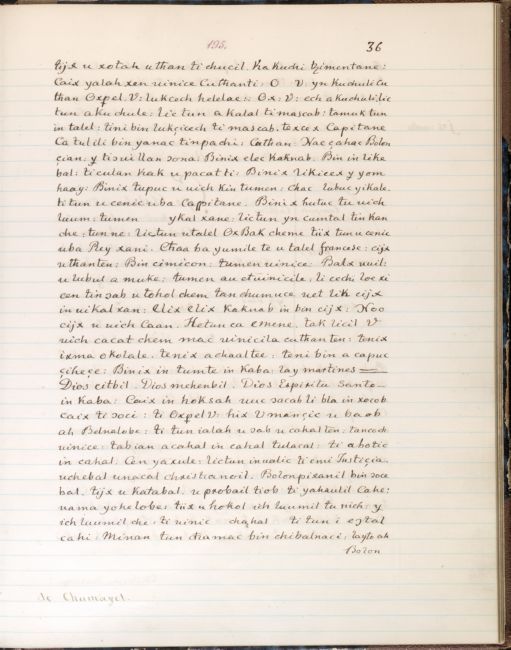 195. 36
tijx u xotah uthan ti chucil. Ka kuchi tzimentane:
Caix yalah xen uinice Cuthanti: O V: yn kuchuli Cu
than Oxpel V: lukcech helelae: Ox: V: ech akuchuli lic
tun a kuchule: lic tun a kalal ti mascab: tamuk tun
in talel: tini bin lukçicech ti mascab. texcex Capitane
Ca tulili bin yanac tinpachi: Cathan. Nacçahac Bolon
çian: y tisuillan sona: Binix elec kaknab. Bin in like
bal: ti culan kak u pacat ti: Binix likicex y yom
haay: Binix tupuc u uich Kin tumen: chac
ti tun u cenic uba Capitane. Binix hutuc tu uich
luum: tumen ykal xane: lic tun yn cumtal tin kan
che: tunne: lictun utalel Ox Bak cheme tiix tun u cenic
uba Rey xani. Chaa ba yumile te u talel francese: cijx
uthantun: Bin cimicon: tumen uinice: Balx uuil:
u lubul a muke: tumen au etuinicile, ti cech
cen tin sab u tohol chem tan chumuce uet lik cijx
in uikal xan: Elix Elix Kaknab in bin cijx: Noo
cijx u uich Caan. Hetun ca emene. tak licil V
uich cacat chem mac uinicila cuthantun: tenix
ixma okolale. tenix achaaltee: teni bin a capuc
çiheçe: Binix in tumte in Kaba: lay martines
Dios citbil. Dios mehenbil. Dios Espiritu Santo
in Kaba: Caix in hoksah uuc sacab ti bla in xocob
caix ti soci: ti Oxpel V: hix V mançic u baob
ah Belnalobe: ti tun ialah u sab u cahalten: tancoch
uinice: tabian acahal in cahal tulacal: ti abotic
in cahal. Cen yaxule: lictun inualic ti emi Justiçia.
uchebal unacal christianoil. Bolon pixanil bin soce
bal. tijx u Katabal. u probail tiob ti yahaulil Cahe:
nama yokolobe: tiix u hokol ich luumil tunich: y
ich luumil che: ti uinic chahal ti tun i eztal
cahi: Minan tun chamac bin chibalnaci: layto ah
Bolon
de Chumayel.